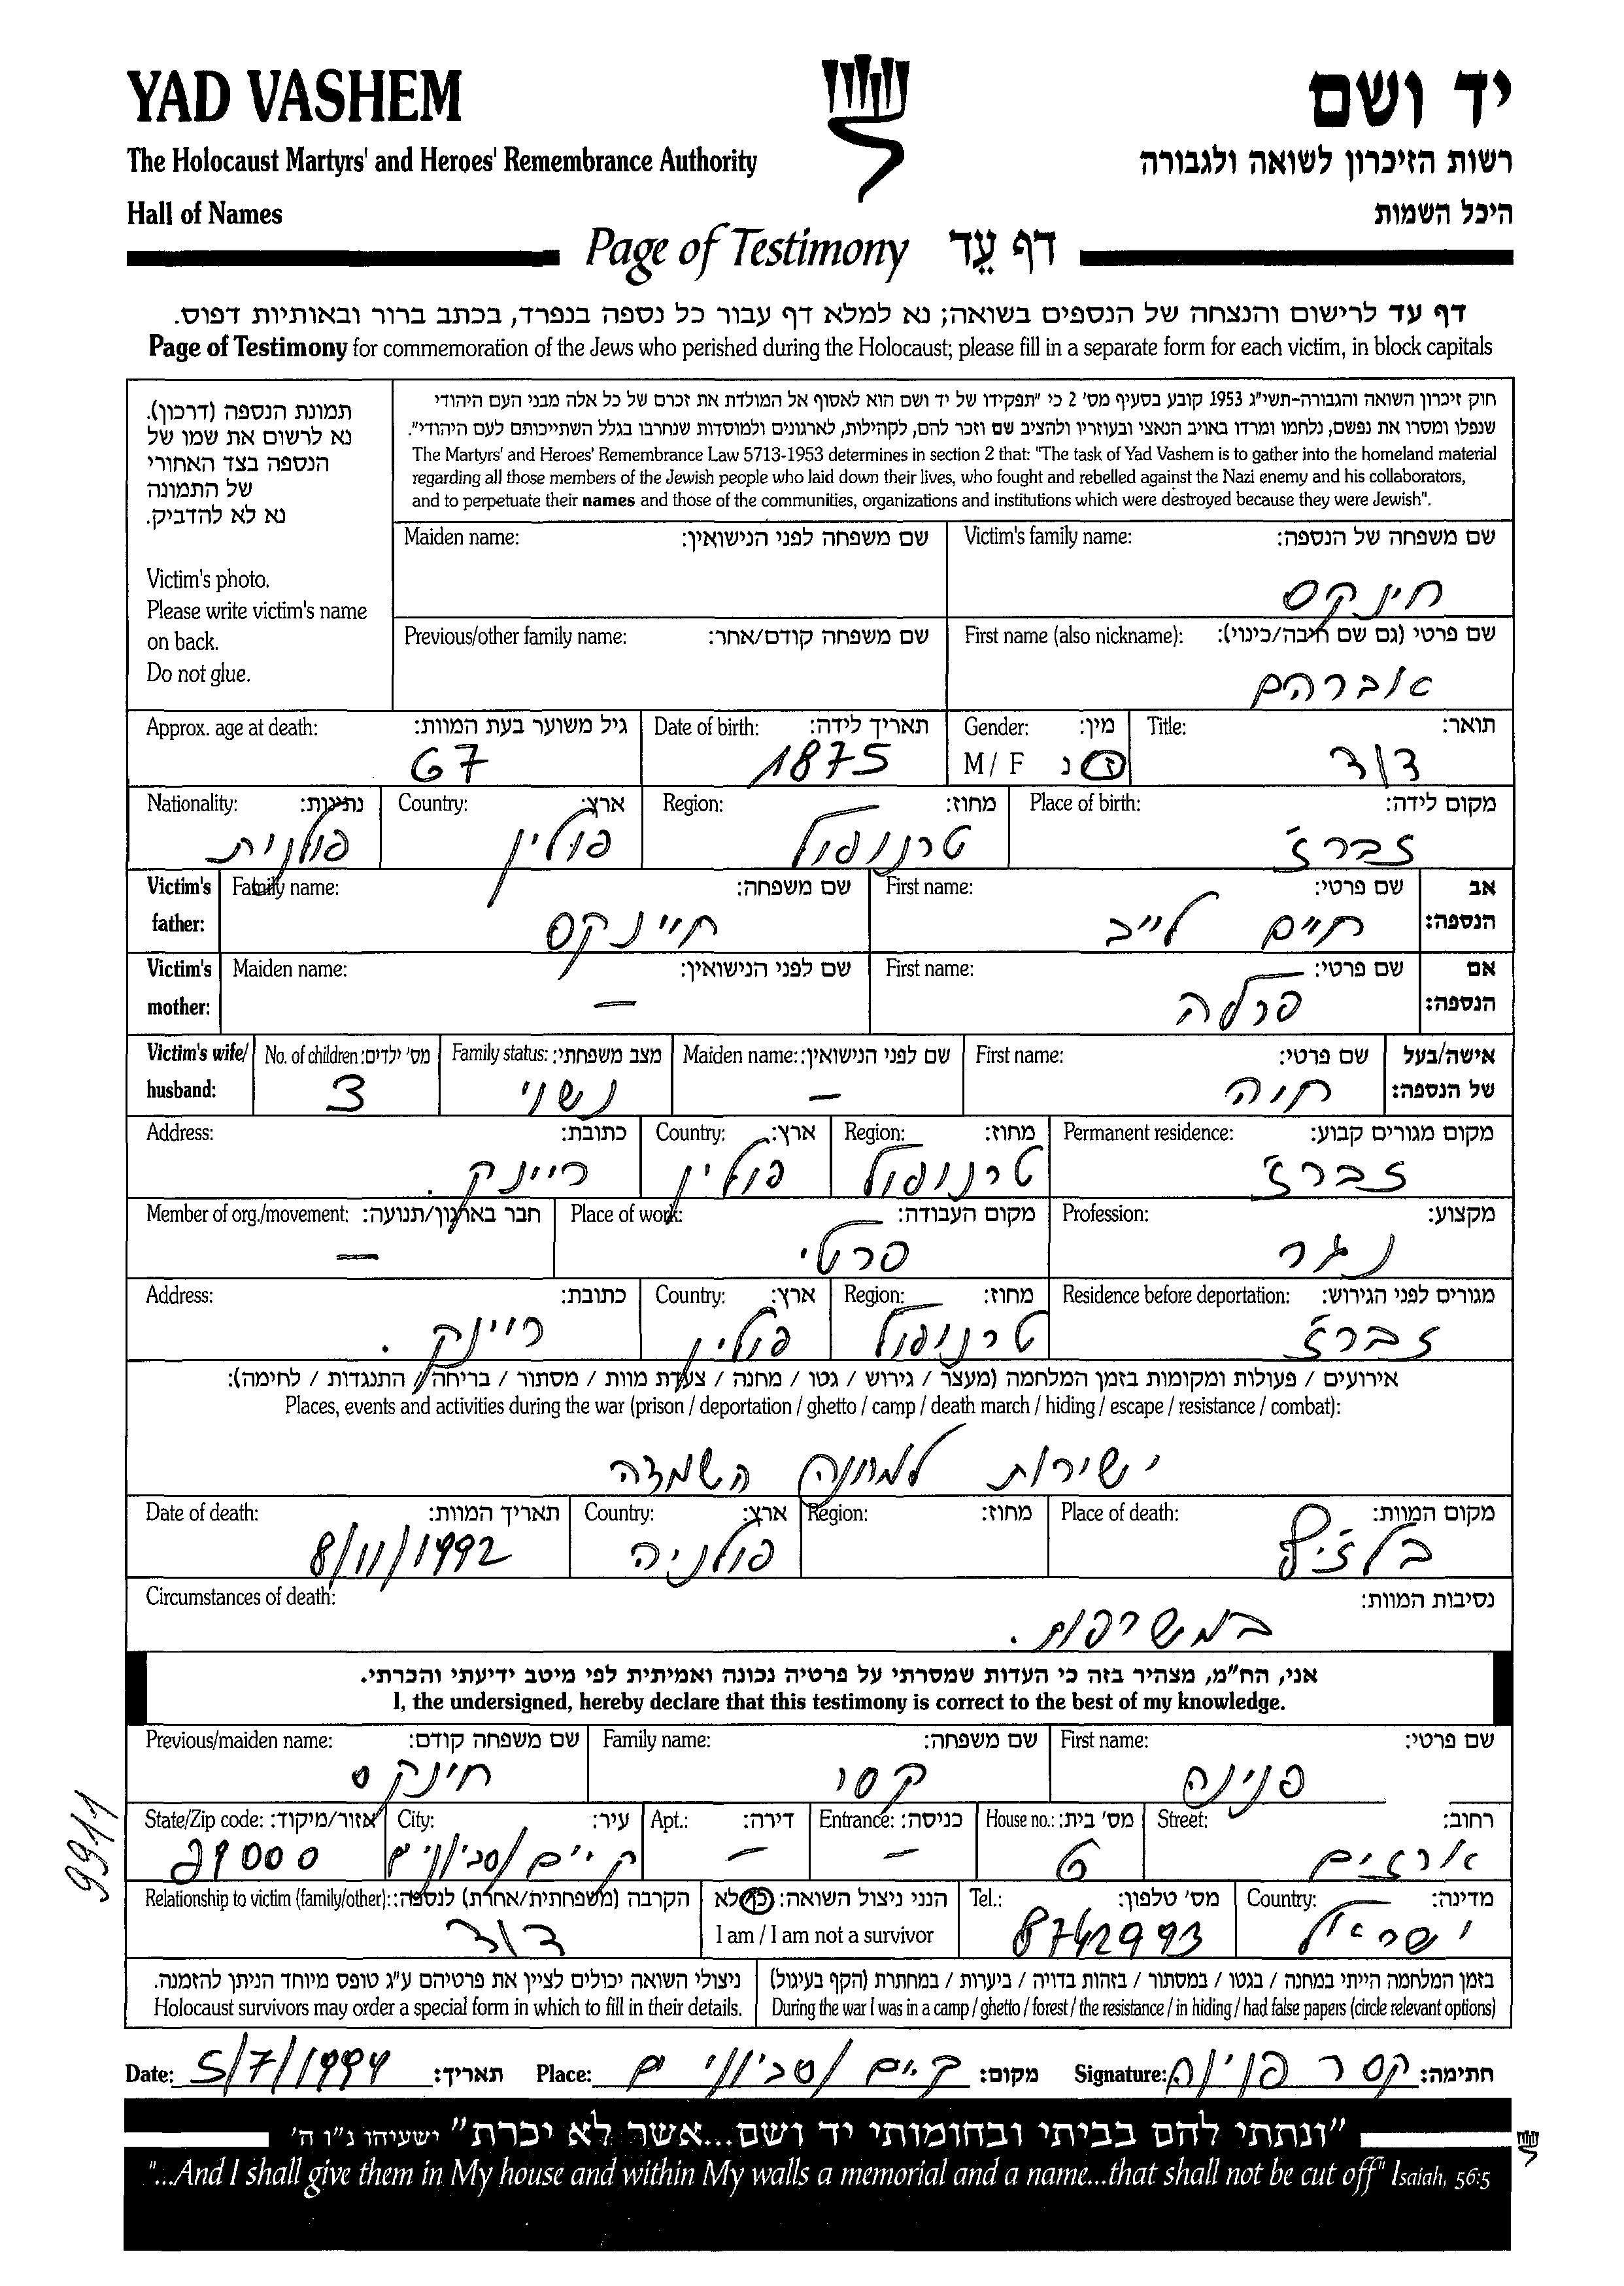 YAD VASHEM
יד ושם
The Holocaust Martyrs' and Heroes' Remembrance Authority
רשות הזיכרון לשואה ולגבורה
Hall of Names
היכל השמות
Page of Testimony דף עֵד
דף עד לרישום והנצחה של הנספים בשואה; נא למלא דף עבור כל נספה בנפרד, בכתב ברור ובאותיות דפוס.
Page of Testimony for commemoration of the Jews who perished during the Holocaust; please fill in a separate form for each victim, in block capitals
תמונת הנספה (דרכון).
נא לרשום את שמו של
הנספה בצד האחורי
של התמונה
נא לא להדביק.
Victim's photo.
Please write victim's name
on back.
Do not glue.
חוק זיכרון השואה והגבורה-תשי"ג 1953 קובע בסעיף מס' 2 כי "תפקידו של יד ושם הוא לאסוף אל המולדת את זכרם של כל אלה מבני העם היהודי
שנפלו ומסרו את נפשם, נלחמו ומרדו באויב הנאצי ובעוזריו ולהציב שם וזכר להם, לקהילות, לארגונים ולמוסדות שנחרבו בגלל השתייכותם לעם היהודי".
The Martyrs' and Heroes' Remembrance Law 5713-1953 determines in section 2 that: "The task of Yad Vashem is to gather into the homeland material
regarding all those members of the Jewish people who laid down their lives, who fought and rebelled against the Nazi enemy and his collaborators,
and to perpetuate their names and those of the communities, organizations and institutions which were destroyed because they were Jewish".
Victim's family name: שם משפחה של הנספה: Maiden name: שם משפחה לפני הנישואין:
חינקס
First name (also nickname): שם פרטי (גם שם חיבה/כינוי): Previous/other family name: שם משפחה קודם/אחר:
אברהם
Title: תואר: Gender: מין: Date of birth: תאריך לידה: Approx. age at death: גיל משוער בעת המוות:
דוד M / F ז נ 1875 67
Place of birth: מקום לידה: Region: מחוז: Country: ארץ: Nationality: נתינות:
זברז' טרנופול פולין פולנית
Victim's father: אב הנספה: First name: שם פרטי: Family name: שם משפחה:
חיים לייב חיינקס
Victim's mother: אם הנספה: First name: שם פרטי: Maiden name: שם לפני הנישואין:
פרלה –
Victim's wife/husband: אישה/בעל של הנספה: First name: שם פרטי: Maiden name: שם לפני הנישואין: Family status: מצב משפחתי: No. of children: מס' ילדים:
חוה – נשוי 3
Permanent residence: מקום מגורים קבוע: Region: מחוז: Country: ארץ: Address: כתובת:
זברז' טרנופול פולין ריינק.
Profession: מקצוע: Place of work: מקום העבודה: Member of org./movement: חבר בארגון/תנועה:
נגר פרטי –
Residence before deportation: מגורים לפני הגירוש: Region: מחוז: Country: ארץ: Address: כתובת:
זברז' טרנופול פולין ריינק.
אירועים / פעולות ומקומות בזמן המלחמה (מעצר / גירוש / גטו / מחנה / צעדת מוות / מסתור / בריחה / התנגדות / לחימה):
Places, events and activities during the war (prison / deportation / ghetto / camp / death march / hiding / escape / resistance / combat):
ישירות למחנה השמדה
Place of death: מקום המוות: Region: מחוז: Country: ארץ: Date of death: תאריך המוות:
פולניה 8/11/1942
Circumstances of death: נסיבות המוות:
במשרפות.
אני, הח"מ, מצהיר בזה כי העדות שמסרתי על פרטיה נכונה ואמיתית לפי מיטב ידיעתי והכרתי.
I, the undersigned, hereby declare that this testimony is correct to the best of my knowledge.
First name: שם פרטי: Family name: שם משפחה: Previous/maiden name: שם משפחה קודם:
פנינה קסר חינקס
Street: רחוב: House no.: מס' בית: Entrance: כניסה: Apt.: דירה: City: עיר: State/Zip code: אזור/מיקוד:
ארזים 6 – – ק.ים/סביונים 29000
9911
Country: מדינה: Tel.: מס' טלפון: הנני ניצול השואה: כן לא Relationship to victim (family/other): הקרבה (משפחתית/אחרת) לנספה:
ישראל 8742993 I am / I am not a survivor דוד
בזמן המלחמה הייתי במחנה / בגטו / במסתור / בזהות בדויה / ביערות / במחתרת (הקף בעיגול)
During the war I was in a camp / ghetto / forest / the resistance / in hiding / had false papers (circle relevant options)
ניצולי השואה יכולים לציין את פרטיהם ע"ג טופס מיוחד הניתן להזמנה.
Holocaust survivors may order a special form in which to fill in their details.
Date: 5/7/1999 תאריך: Place: ק.ים/סביונים מקום: Signature: קסר פנינה חתימה:
"ונתתי להם בביתי ובחומותי יד ושם...אשר לא יכרת" ישעיהו נ"ו ה'
"...And I shall give them in My house and within My walls a memorial and a name...that shall not be cut off" Isaiah, 56:5